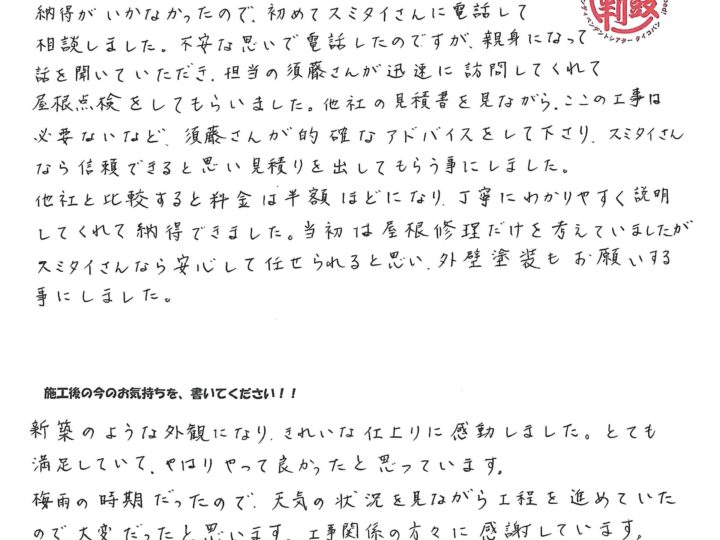 納得がいかなかったので、初めてスミタイさんに電話して
相談しました。不安な思いで電話したのですが、親身になって
話を聞いていただき、担当の須藤さんが迅速に訪問してくれて
屋根点検をしてもらいました。他社の見積書を見ながら、ここの工事は
必要ないなど、須藤さんが的確なアドバイスをして下さり、スミタイさん
なら信頼できると思い見積りを出してもらう事にしました。
他社と比較すると料金は半額ほどになり、丁寧にわかりやすく説明
してくれて納得できました。当初は屋根修理だけを考えていましたが
スミタイさんなら安心して任せられると思い、外壁塗装もお願いする
事にしました。
施工後の今のお気持ちを、書いてください！！
新築のような外観になり、きれいな仕上りに感動しました。とても
満足していて、やはりやって良かったと思っています。
梅雨の時期だったので、天気の状況を見ながら工程を進めていた
ので大変だったと思います。工事関係の方々に感謝しています。